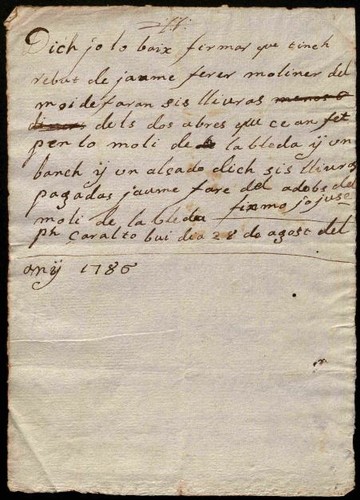 Dich jo lo baix firmar que tinch
rebut de jaume ferer moliner del
moi de faran sis lliuras
dels dos abres que ce an fet
pen lo moli de la bleda ÿ un
banch ÿ un alcado dich sis lliuras
pagadas jaume fare del adobs del
moli de la bleda firmo jo juse
ph Caralto bui dia 28 de agost del
anÿ 1786